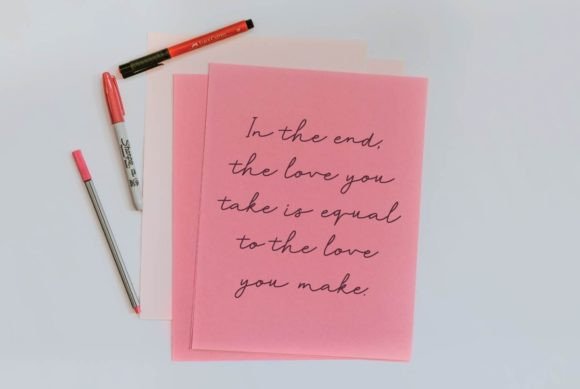 In the end,
the love you
take is equal
to the love
you make.
Sharpie
Faber-Castell